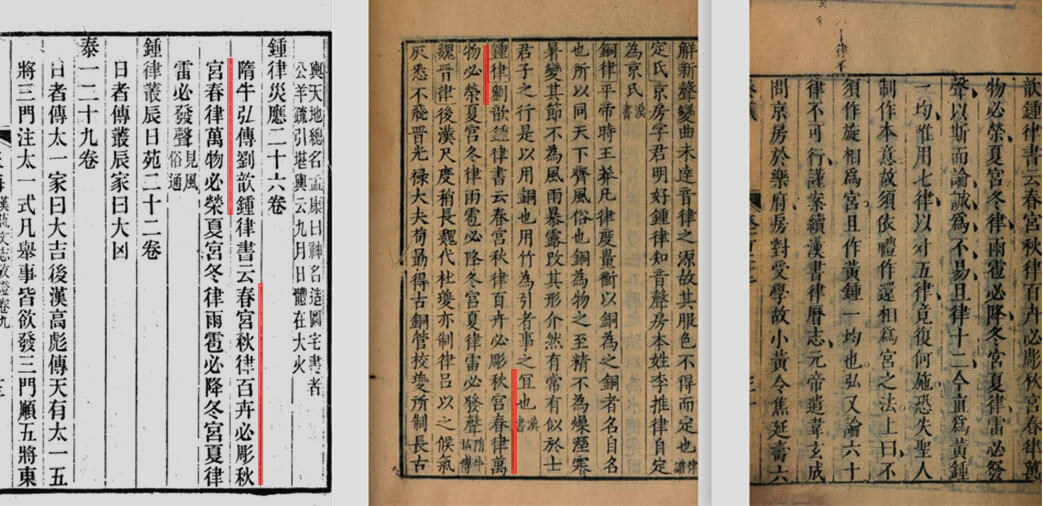 輿天地總名孟康曰神名造圖宅書者
公羊疏引堪輿云九月日體在大火
鍾律災應二十六卷
隋牛弘傳劉歆鍾律書云春宮秋律百卉必彫秋
宮春律萬物必榮夏宮冬律雨雹必降冬宮夏律
雷必發聲見風俗通
鍾律叢辰日苑二十二卷
日者傳叢辰家曰大凶
泰一二十九卷
日者傳太一家曰大吉後漢高彪傳天有太一五
將三門注太一式凡舉事皆欲發三門順五將東
海 漢藝文志攷證卷九
解新聲變曲未達音律之源故其服色不得而定也律譜
定氏京房字君明好鍾律知音聲房本姓李推律自定
為京氏漢書
銅律平帝時王莽凡律度量衡以銅為之銅者名自名
也所以同天下齊風俗也銅為物之至精不為燥溼寒
暑變其節不為風雨暴露改其形介然有常有似於士
君子之行是以用銅也用竹為引者事之宜也漢書
鍾律劉歆鍾律書云春宮秋律百卉必彫秋宮春律萬
物必榮夏宮冬律雨雹必降冬宮夏律雷必發聲隋牛弘傳
魏晉律後漢尺度稍長魏代杜夔亦制律呂以之候氣
灰悉不飛晉光祿大夫荀勗得古銅管校夔所制長古
歆鍾律書云春宮秋律百卉必彫秋宮春律萬
物必榮夏宮冬律雨雹必降冬宮夏律雷必發
聲以斯而論誠為不易且律十二今直為黃鍾
一均惟用七律以外五律竟復何施恐失聖人
制作本意故須依禮作還相為宮之法上曰不
須作旋相為宮且作黃鍾一均也弘又論六十
律不可行謹案續漢書律曆志元帝遣韋玄成
問京房於樂府房對受學故小黃令焦延壽六